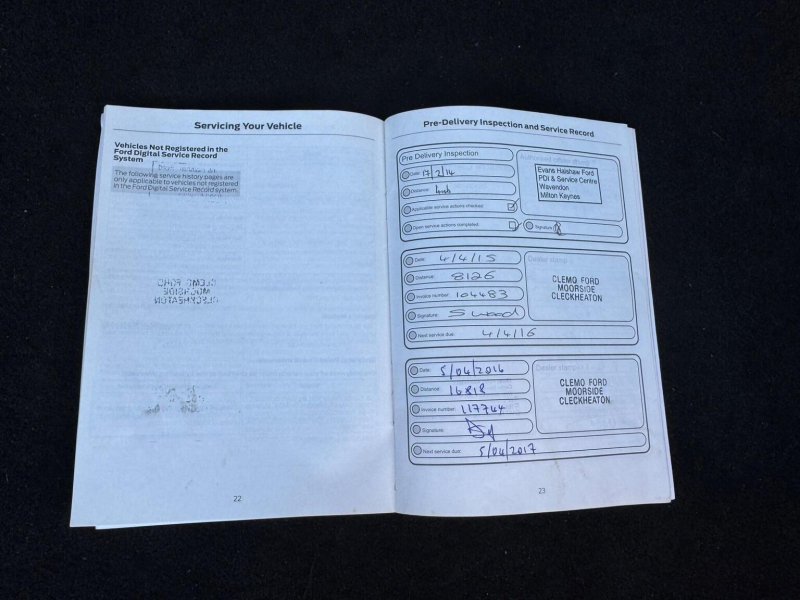 Servicing Your Vehicle
Vehicles Not Registered in the
Ford Digital Service Record
System
The following service history pages are
only applicable to vehicles not registered
in the Ford Digital Service Record system.
22
Pre-Delivery Inspection and Service Record
Pre Delivery Inspection
Date: 17/2/14
Distance:
Applicable service actions checked:
Open service actions completed:
Authorised dealer stamp
Evans Halshaw Ford
PDI & Service Centre
Wavendon
Milton Keynes
Signature:
Date: 4/4/15
Distance: 8126
Invoice number: 104483
Signature: S wood
Next service due: 4/4/16
Dealer stamp
CLEMO FORD
MOORSIDE
CLECKHEATON
Date: 5/04/2016
Distance: 16818
Invoice number: 117744
Signature:
Next service due: 5/04/2017
Dealer stamp
CLEMO FORD
MOORSIDE
CLECKHEATON
23